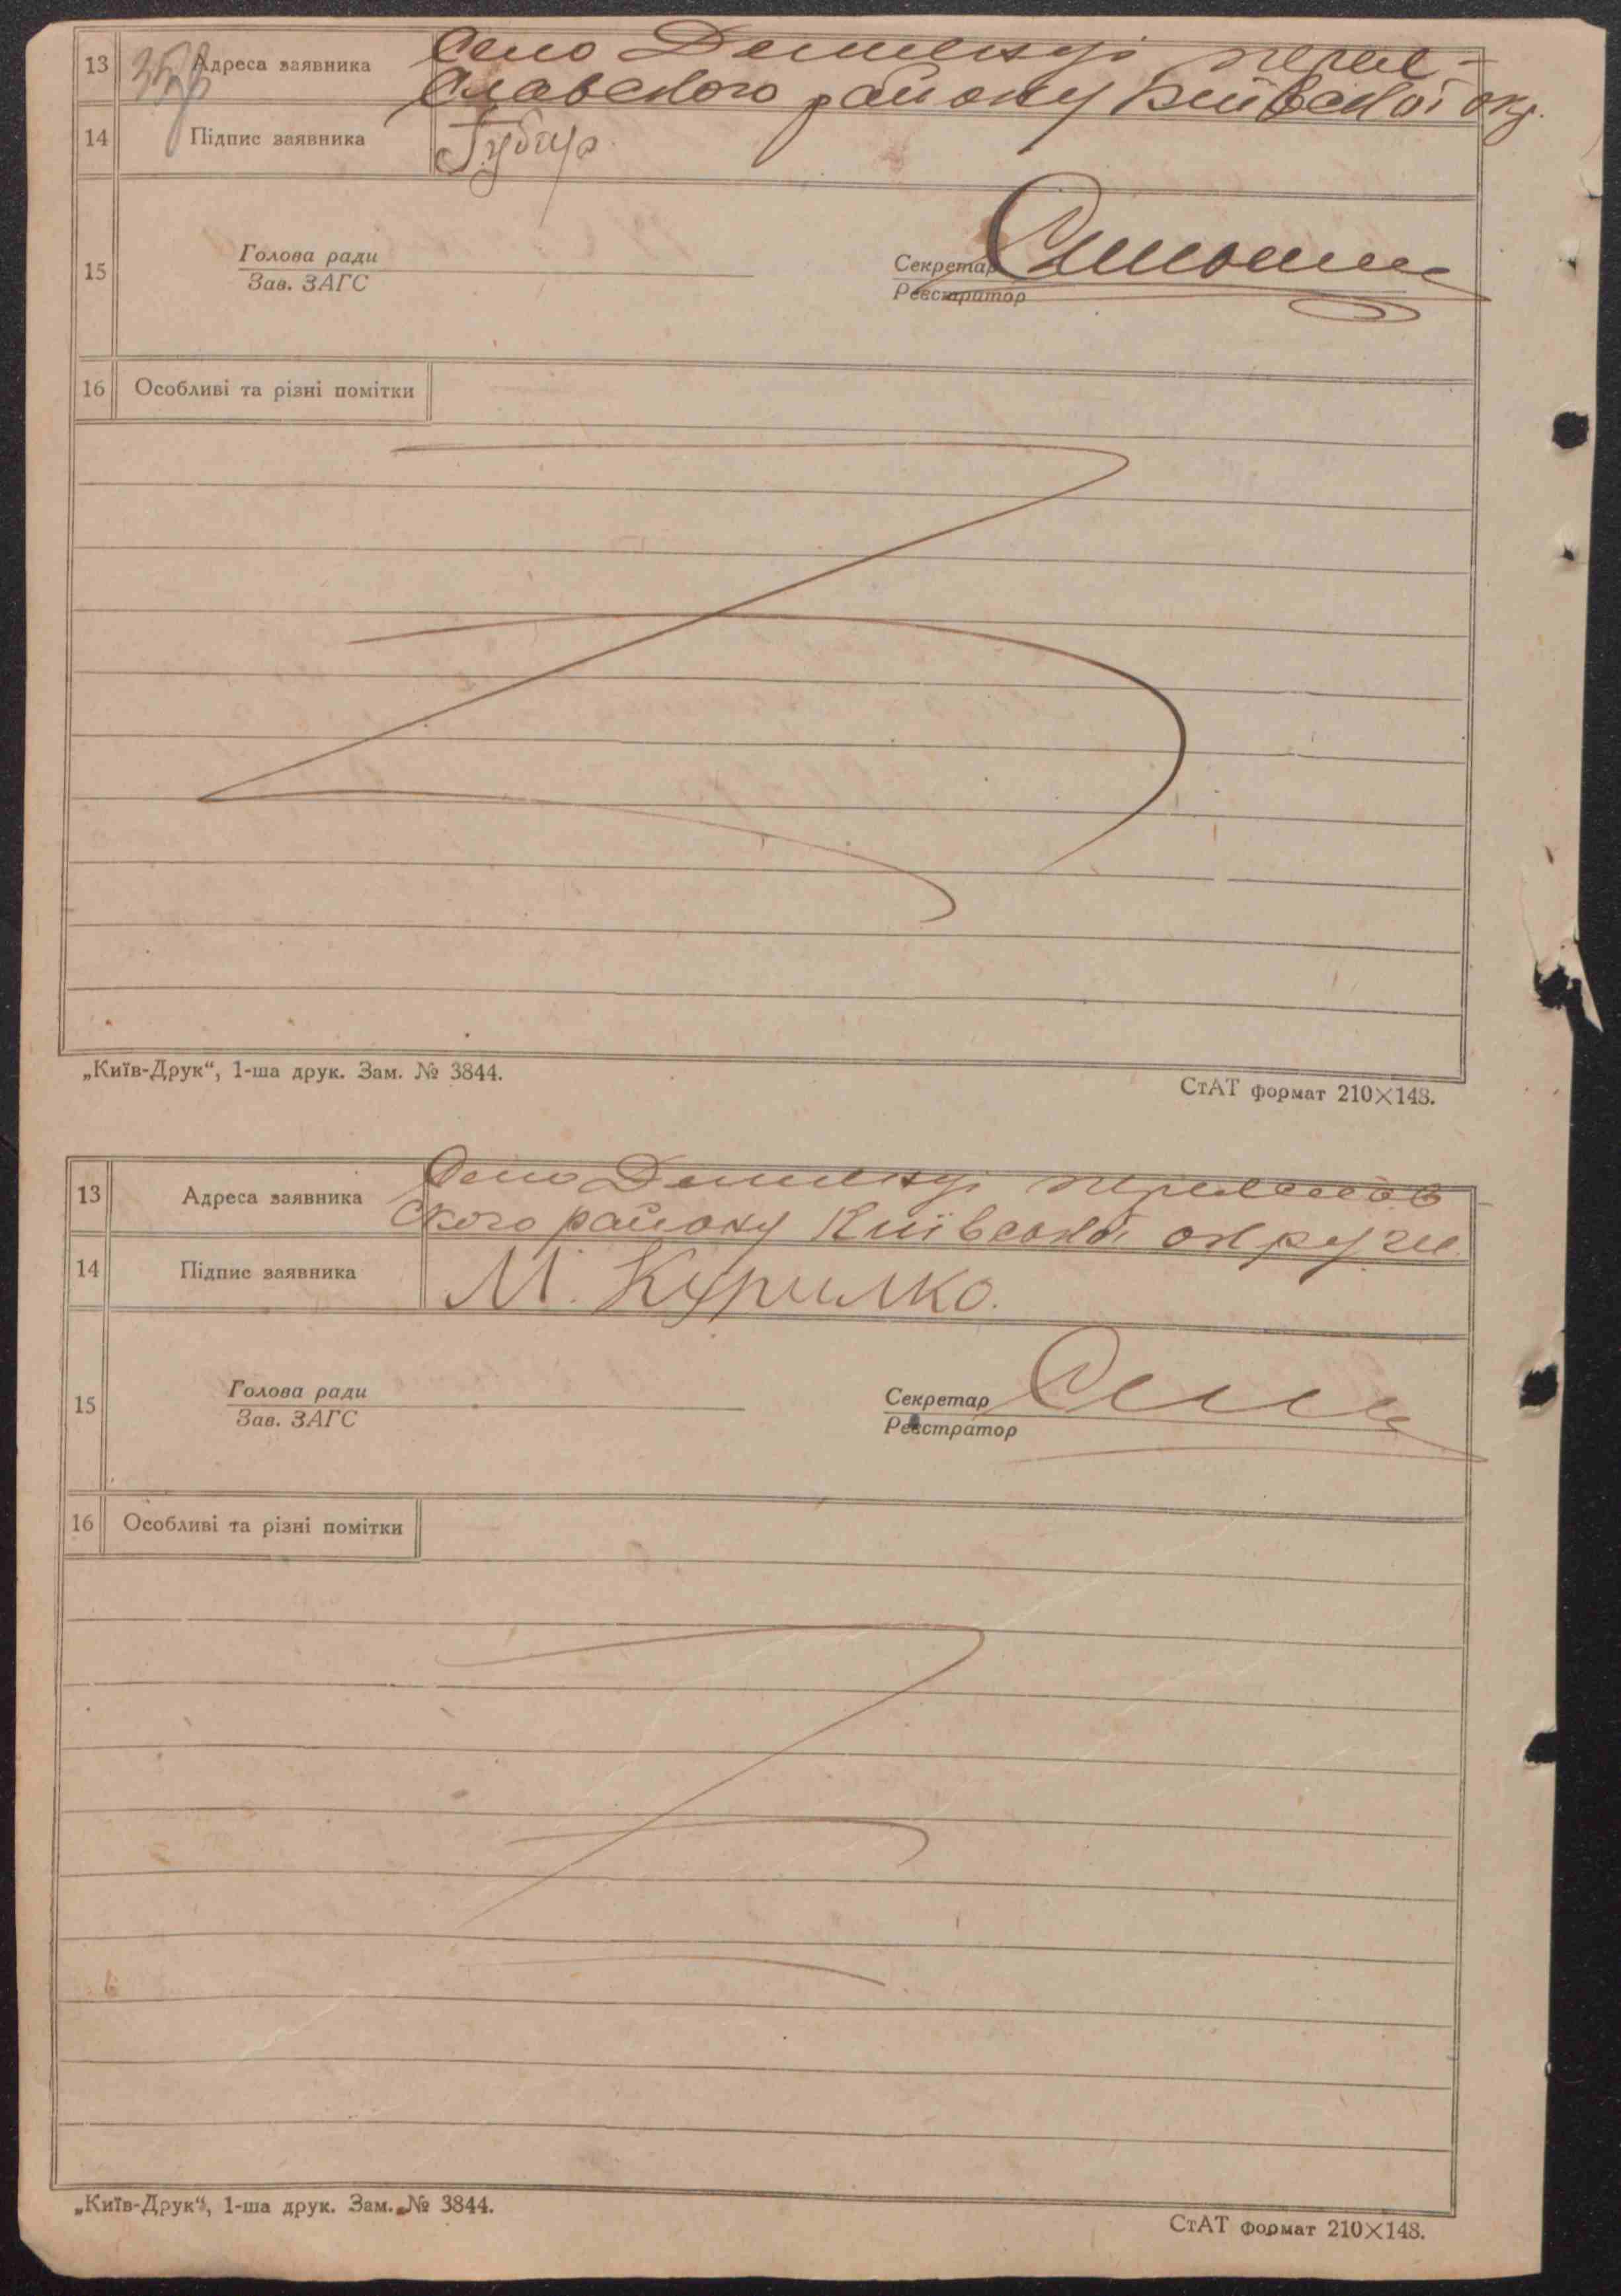 13 Адреса заявника Село Демьянці переяс-
славського району Київської окр.
14 Підпис заявника Губар
15 Голова ради Секретар
Зав. ЗАГС Реєстратор
16 Особливі та різні помітки
„Київ-Друк“, 1-ша друк. Зам. № 3844.
СтАТ формат 210×148.
13 Адреса заявника Село Демьянці переяслав
ского району Київської округи
14 Підпис заявника М. Курилко.
15 Голова ради Секретар
Зав. ЗАГС Реєстратор
16 Особливі та різні помітки
„Київ-Друк“, 1-ша друк. Зам. № 3844.
СтАТ формат 210×148.